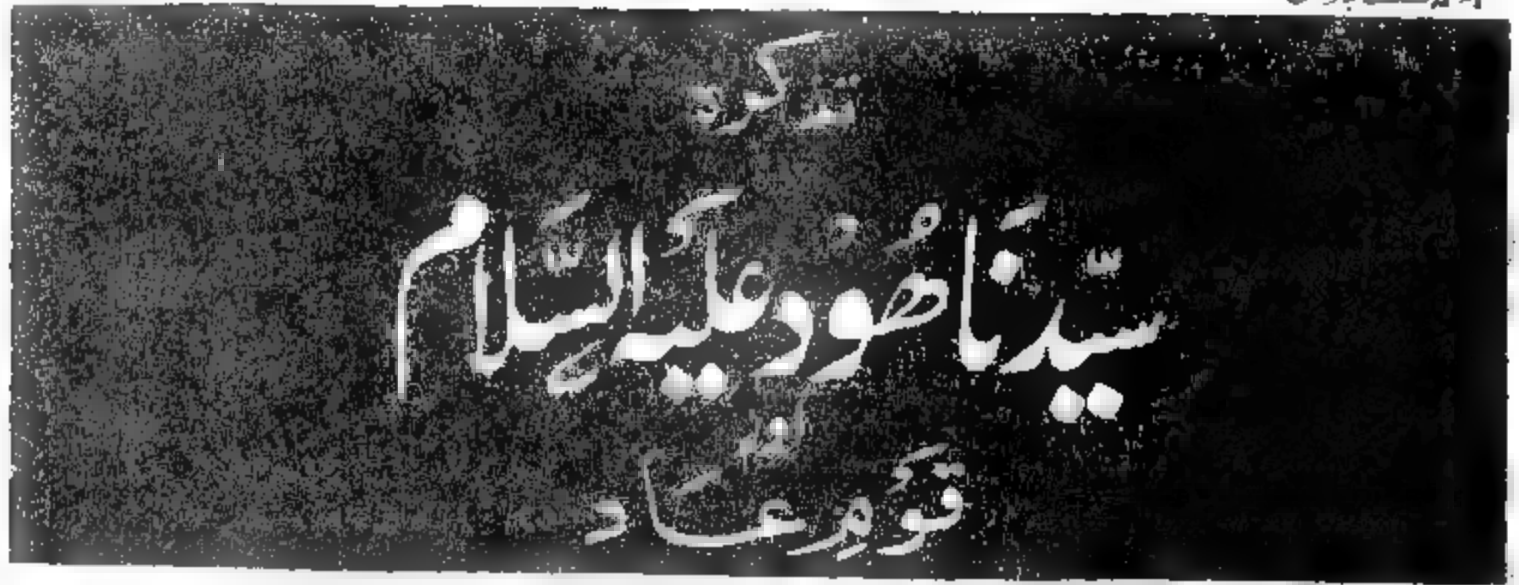 تذکرہ
سَیِّدنَا ھُوْد عَلَیْہِ السَّلَام
اور
قَوْمِ عَاد